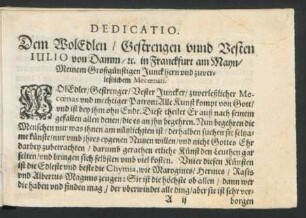 DEDICATIO.
Dem WolEdlen / Gestrengen vnnd Vesten
IULIO von Damm / ec. in Franckfurt am Mayn /
Meinem Großgünstigen Junckhern vnd zuver-
lessichem Mecœnati.
WOlEdler / Gestrenger / Vester Juncker / zuverlessicher Me-
cœnas vnd mechtiger Patron: Alle Kunst kompt von Gott /
vnd ist bey jhm ohn Ende. Diese theilet Er auß nach seinem
gefallen allen denen / die es an jhn begehren. Nun begehren die
Menschen nur was jhnen am nützlichsten ist / derhalben suchen sie
künste / nur vmb jhres eygenen Nutzen willen / vnd nicht Gottes Ehr
darbey zubetrachten / darumb gerathen etliche Künst den Leuthen gar
selten / vnd bringen sich selbsten vmb viel kosten. Vnter diesen Künsten
ist die Edleste vnd beste die Chymia, wie Morgenius / Hermes / Rasis
vnd Albertus Magnus zeugen: Sie ist die höchste ob allen / dann wer
die haben vnd finden mag / der vberwindet alle ding / aber sie ist sehr ver-
A ij
borgen